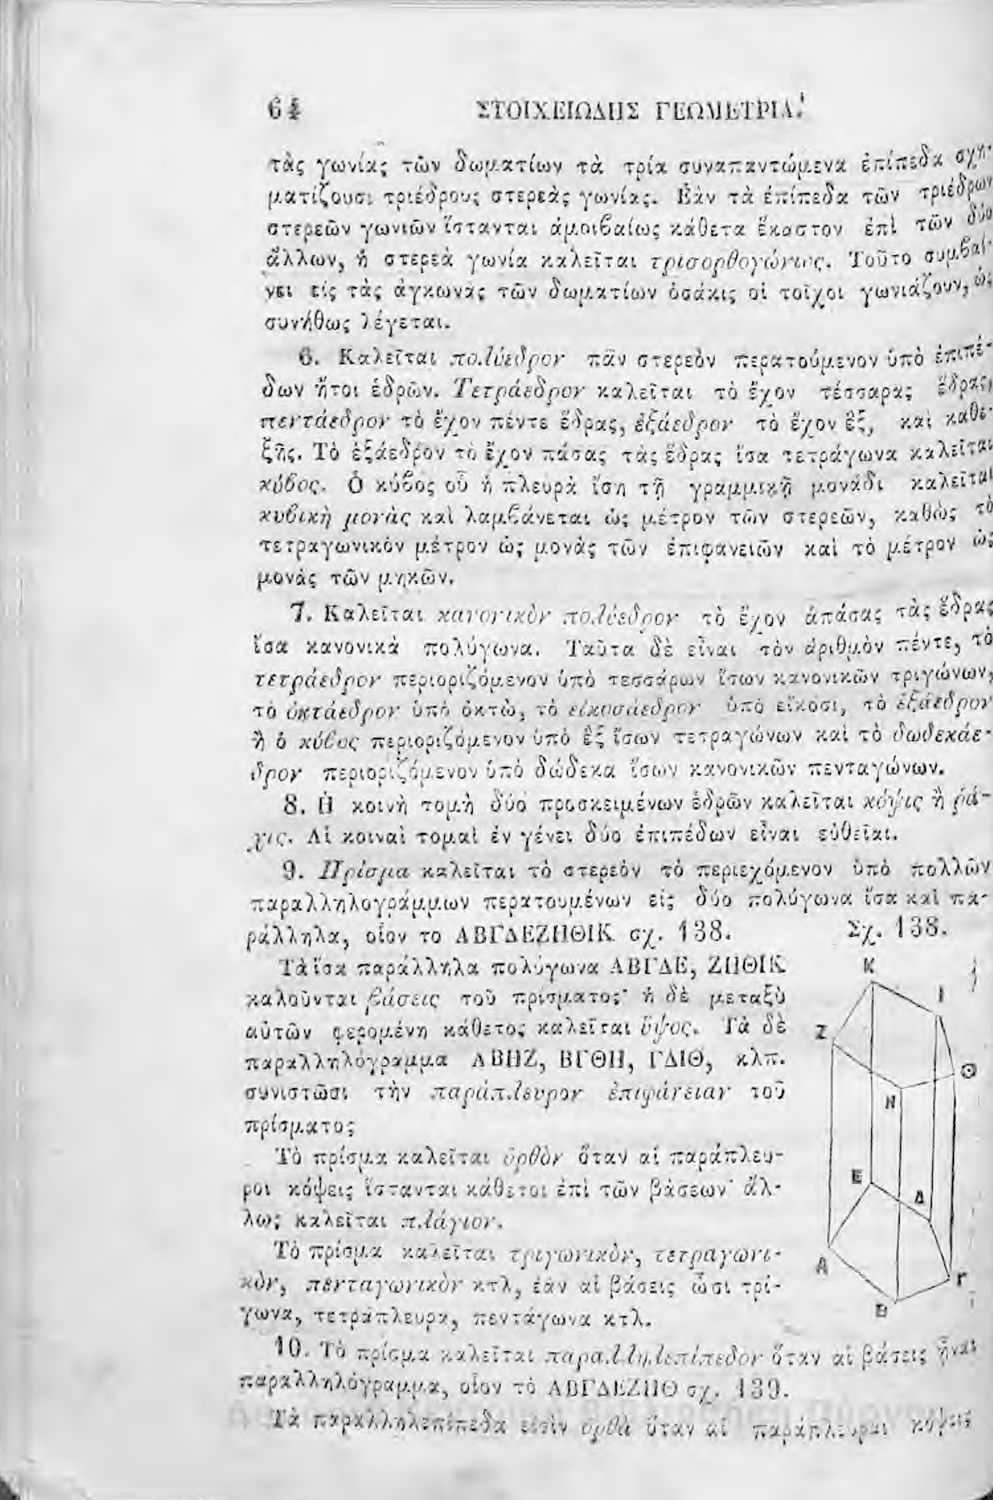 64 ΣΤΟΙΧΕΙΩΔΗΣ ΓΕΩΜΕΤΡΙΑ.
τὰς γωνίας τῶν δωματίων τὰ τρία συναπαντώμενα ἐπίπεδα σχη-
ματίζουσι τριέδρους στερεὰς γωνίας. Ἐὰν τὰ ἐπίπεδα τῶν τριέδρων
στερεῶν γωνιῶν ἵστανται ἀμοιβαίως κάθετα ἕκαστον ἐπὶ τῶν δύο
ἄλλων, ἡ στερεὰ γωνία καλεῖται τρισορθογώνιος. Τοῦτο συμβαί-
νει εἰς τὰς ἀγκωνὰς τῶν δωματίων ὁσάκις οἱ τοῖχοι γωνιάζουν, ὡς
συνήθως λέγεται.
6. Καλεῖται πολύεδρον πᾶν στερεὸν περατούμενον ὑπὸ ἐπιπέ-
δων ἤτοι ἑδρῶν. Τετράεδρον καλεῖται τὸ ἔχον τέσσαρας ἕδρας,
πεντάεδρον τὸ ἔχον πέντε ἕδρας, ἑξάεδρον τὸ ἔχον ἓξ, καὶ καθε-
ξῆς. Τὸ ἑξάεδρον τὸ ἔχον πάσας τὰς ἕδρας ἴσα τετράγωνα καλεῖται
κύβος. Ὁ κύβος οὗ ἡ πλευρὰ ἴση τῇ γραμμικῇ μονάδι καλεῖται
κυβικὴ μονὰς καὶ λαμβάνεται ὡς μέτρον τῶν στερεῶν, καθὼς τὸ
τετραγωνικὸν μέτρον ὡς μονὰς τῶν ἐπιφανειῶν καὶ τὸ μέτρον ὡς
μονὰς τῶν μηκῶν.
7. Καλεῖται κανονικὸν πολύεδρον τὸ ἔχον ἁπάσας τὰς ἕδρας
ἴσα κανονικὰ πολύγωνα. Ταῦτα δὲ εἶναι τὸν ἀριθμὸν πέντε, τὸ
τετράεδρον περιοριζόμενον ὑπὸ τεσσάρων ἴσων κανονικῶν τριγώνων,
τὸ ὀκτάεδρον ὑπὸ ὀκτὼ, τὸ εἰκοσάεδρον ὑπὸ εἴκοσι, τὸ ἑξάεδρον
ἢ ὁ κύβος περιοριζόμενον ὑπὸ ἓξ ἴσων τετραγώνων καὶ τὸ δωδεκάε-
δρον περιοριζόμενον ὑπὸ δώδεκα ἴσων κανονικῶν πενταγώνων.
8. Ἡ κοινὴ τομὴ δύο προσκειμένων ἑδρῶν καλεῖται κόψις ἢ ῥά-
χις. Αἱ κοιναὶ τομαὶ ἐν γένει δύο ἐπιπέδων εἶναι εὐθεῖαι.
9. Πρίσμα καλεῖται τὸ στερεὸν τὸ περιεχόμενον ὑπὸ πολλῶν
παραλληλογράμμων περατουμένων εἰς δύο πολύγωνα ἴσα καὶ πα-
ράλληλα, οἷον το ΑΒΓΔΕΖΗΘΙΚ σχ. 138.
Σχ. 138.
Τὰ ἴσα παράλληλα πολύγωνα ΑΒΓΔΕ, ΖΗΘΙΚ
καλοῦνται βάσεις τοῦ πρίσματος· ἡ δὲ μεταξὺ
αὐτῶν φερομένη κάθετος καλεῖται ὕψος. Τὰ δὲ
παραλληλόγραμμα ΑΒΗΖ, ΒΓΘΗ, ΓΔΙΘ, κλπ.
συνιστῶσι τὴν παράπλευρον ἐπιφάνειαν τοῦ
πρίσματος
Τὸ πρίσμα καλεῖται ὀρθὸν ὅταν αἱ παράπλευ-
ροι κόψεις ἵστανται κάθετοι ἐπὶ τῶν βάσεων· ἄλ-
λως καλεῖται πλάγιον.
Τὸ πρίσμα καλεῖται τριγωνικὸν, τετραγωνι-
κὸν, πενταγωνικὸν κτλ, ἐὰν αἱ βάσεις ὦσι τρί-
γωνα, τετράπλευρα, πεντάγωνα κτλ.
Κ
Ι
Ζ
Θ
Η
Ε
Δ
Α
Γ
Β
10. Τὸ πρίσμα καλεῖται παραλληλεπίπεδον ὅταν αἱ βάσεις ἦναι
παραλληλόγραμμα, οἷον τὸ ΑΒΓΔΕΖΗΘ σχ. 139.
Τὰ παραλληλεπίπεδα εἰσὶν ὀρθὰ ὅταν αἱ παράπλευροι κόψεις